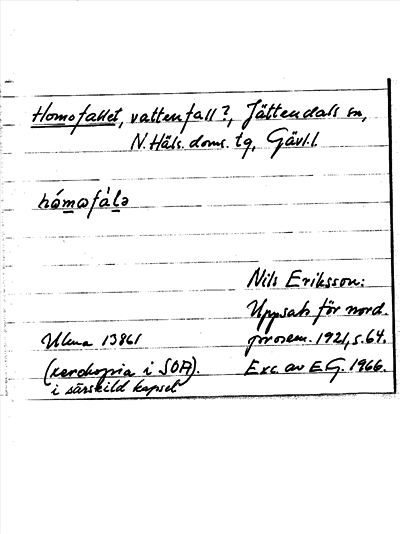 Homofallet, vattenfall?, Jättendals sn,
N. Häls. doms. tg, Gävl.l.
hómωfálə
Nils Eriksson:
Uppsats för nord.
prosem. 1921, s. 64.
Ulma 13861
(xerokopia i SOA).
i särskild kapsel
Exc. av E.G. 1966.